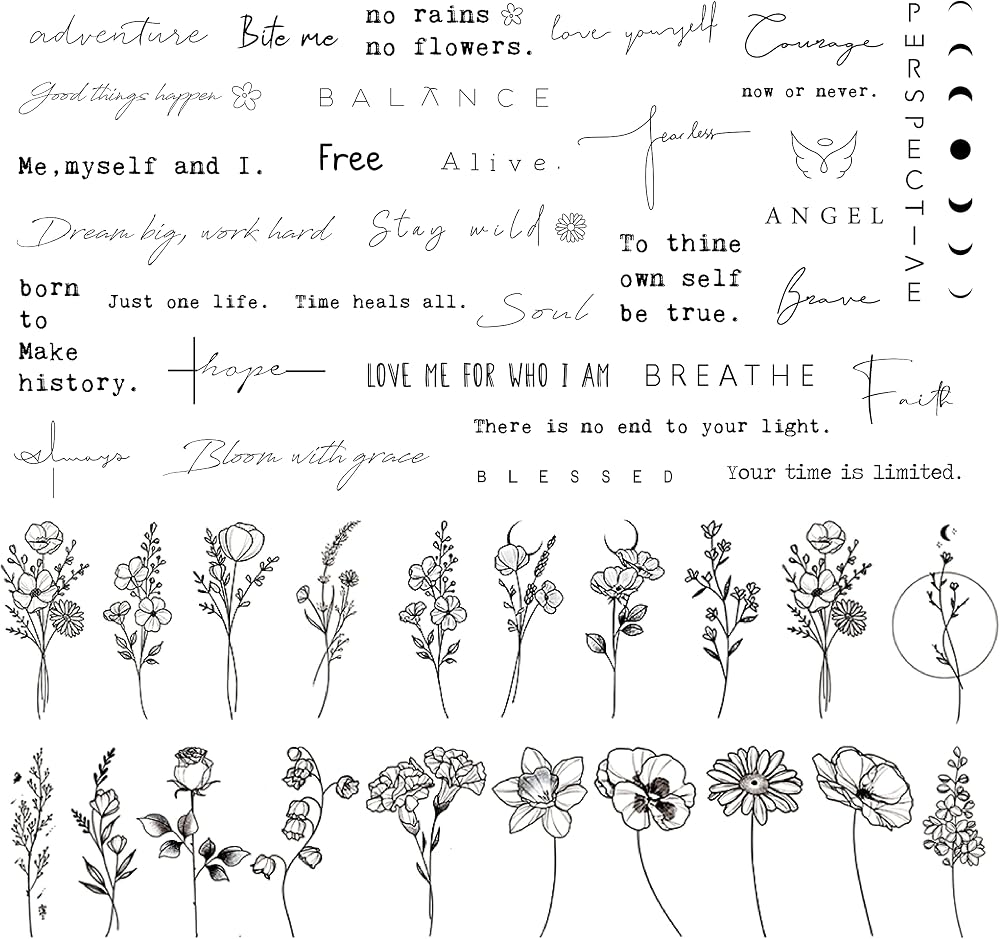 adventure
Bite me
no rains
no flowers.
love yourself
Courage
PERSPECTIVE
Good things happen
BALANCE
now or never.
fearless
Me,myself and I.
Free
Alive.
ANGEL
Dream big, work hard
Stay wild
To thine
own self
be true.
born
to
Make
history.
Just one life.
Time heals all.
Soul
Brave
hope
LOVE ME FOR WHO I AM
BREATHE
Faith
There is no end to your light.
always
Bloom with grace
BLESSED
Your time is limited.